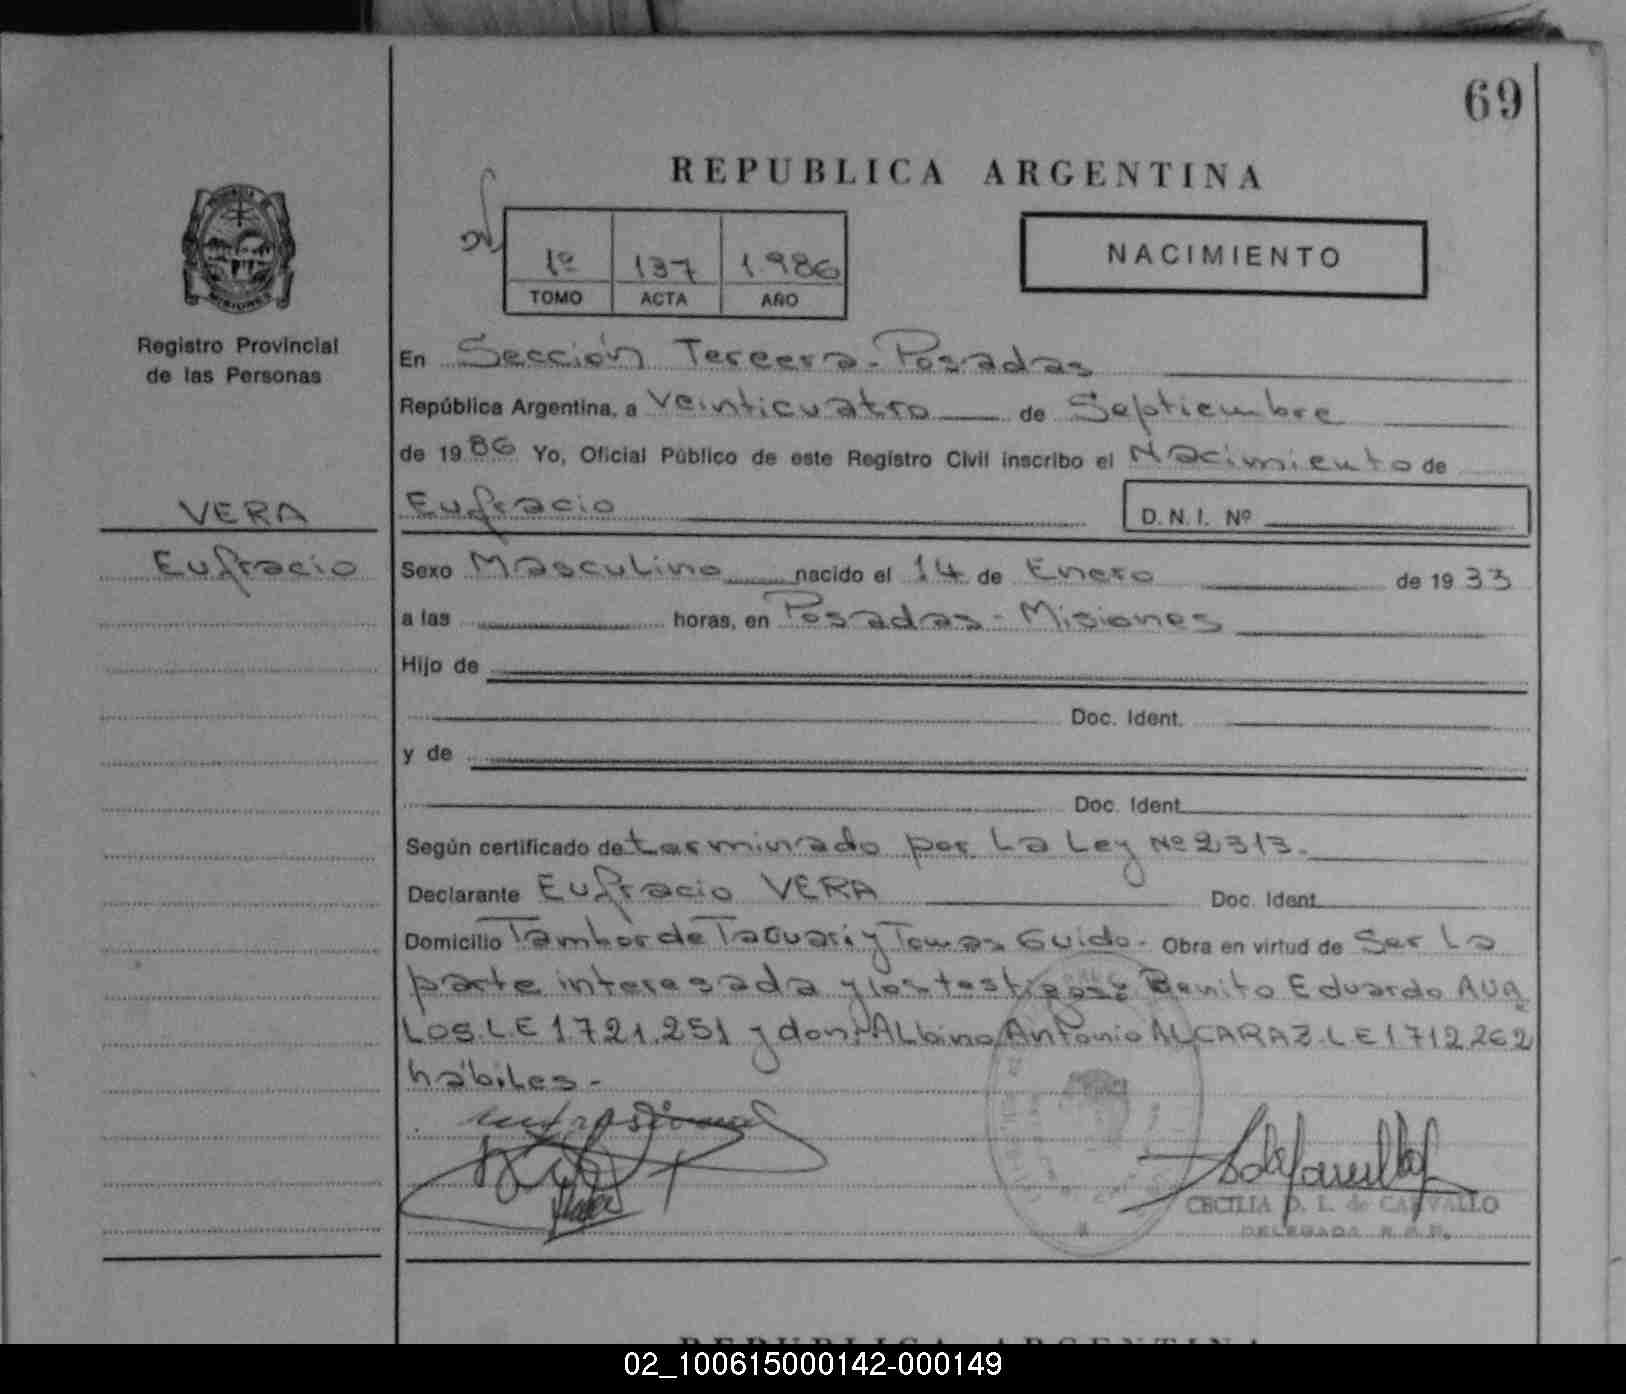 69
REPUBLICA ARGENTINA
1º 137 1.986
TOMO ACTA AÑO
NACIMIENTO
MISIONES
Registro Provincial
de las Personas
En Sección Tercera - Posadas
República Argentina, a Veinticuatro de Septiembre
de 1986 Yo, Oficial Público de este Registro Civil inscribo el Nacimiento de
VERA
Eufracio
Eufracio D.N.I. Nº
Sexo Masculino nacido el 14 de Enero de 1933
a las horas, en Posadas - Misiones
Hijo de
Doc. Ident.
y de
Doc. Ident.
Según certificado de terminado por La Ley Nº 2313.-
Declarante Eufracio VERA Doc. Ident.
Domicilio Tambor de Tacuari y Tomas Guido.- Obra en virtud de Ser La
parte interesada y los testigos: Benito Eduardo AVA
LOS.L.E 1.721.251 y don: ALbino Antonio ALCARAZ.L E 1 712 262
hábiles.-
CECILIA D. L. de CARVALLO
DELEGADA R.P.P.
REPUBLICA ARGENTINA
02_100615000142-000149